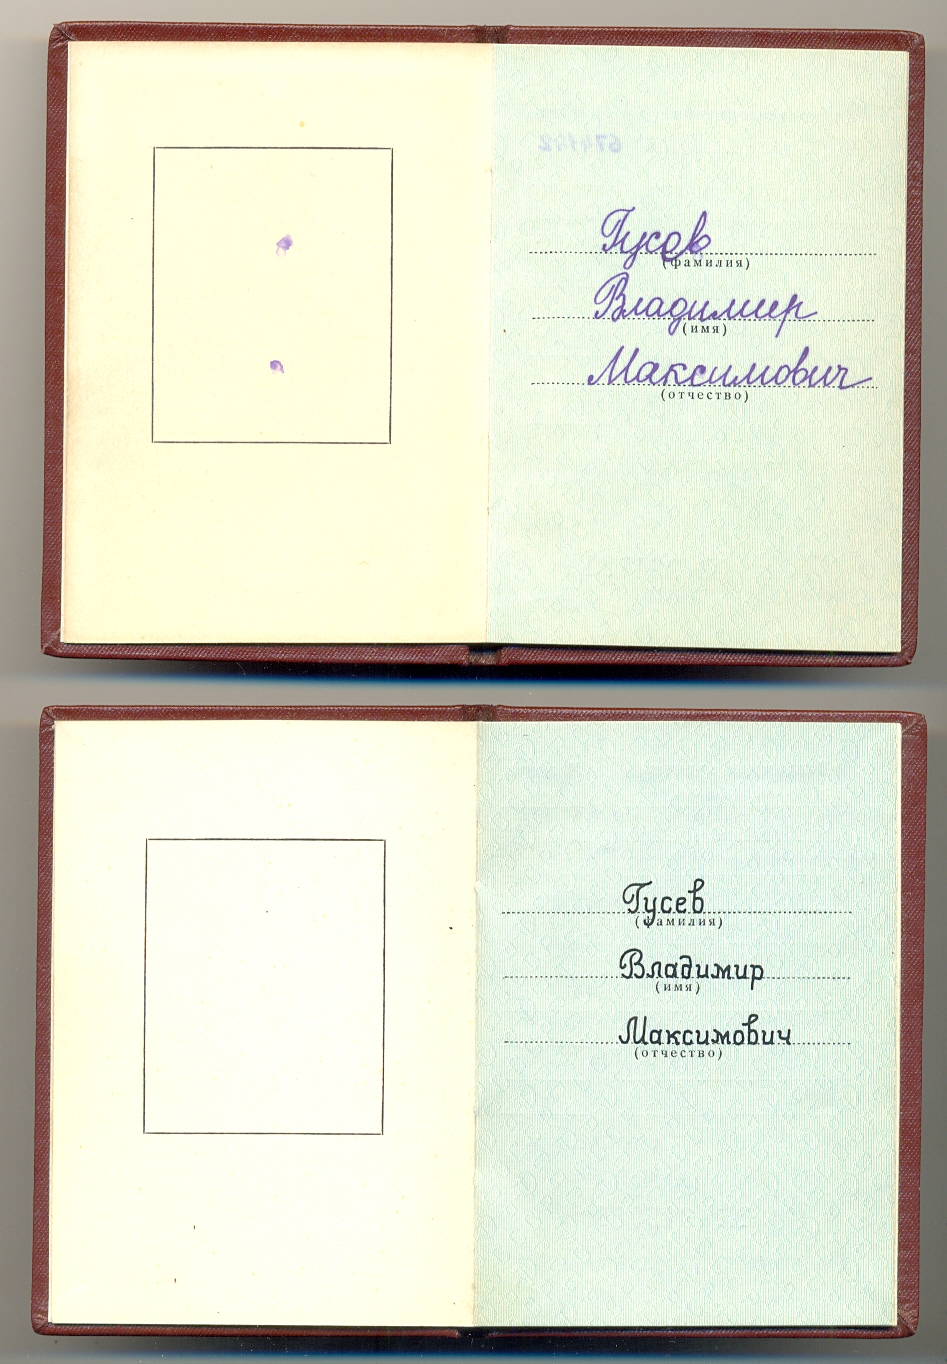 Гусов
(фамилия)
Владимир
(имя)
Максимович
(отчество)
Гусев
(фамилия)
Владимир
(имя)
Максимович
(отчество)